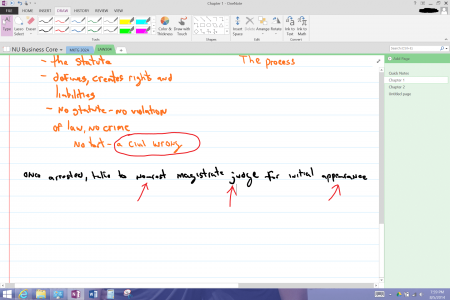 Chapter 1 - OneNote
FILE HOME INSERT DRAW HISTORY REVIEW VIEW
Type Lasso Select Panning Hand Eraser
Color & Thickness Draw with Touch
Insert Space Delete Arrange Rotate
Ink to Text Ink to Math
Tools Shapes Edit Convert
NU Business Core
Add Page
Quick Notes
Chapter 1
Chapter 2
Untitled page
- the statute The process
- defines, creates rights and
liabilities
- No statute - no violation
of law, no crime
No tort - a civil wrong
once arrested, take to nearest magistrate judge for initial appearance